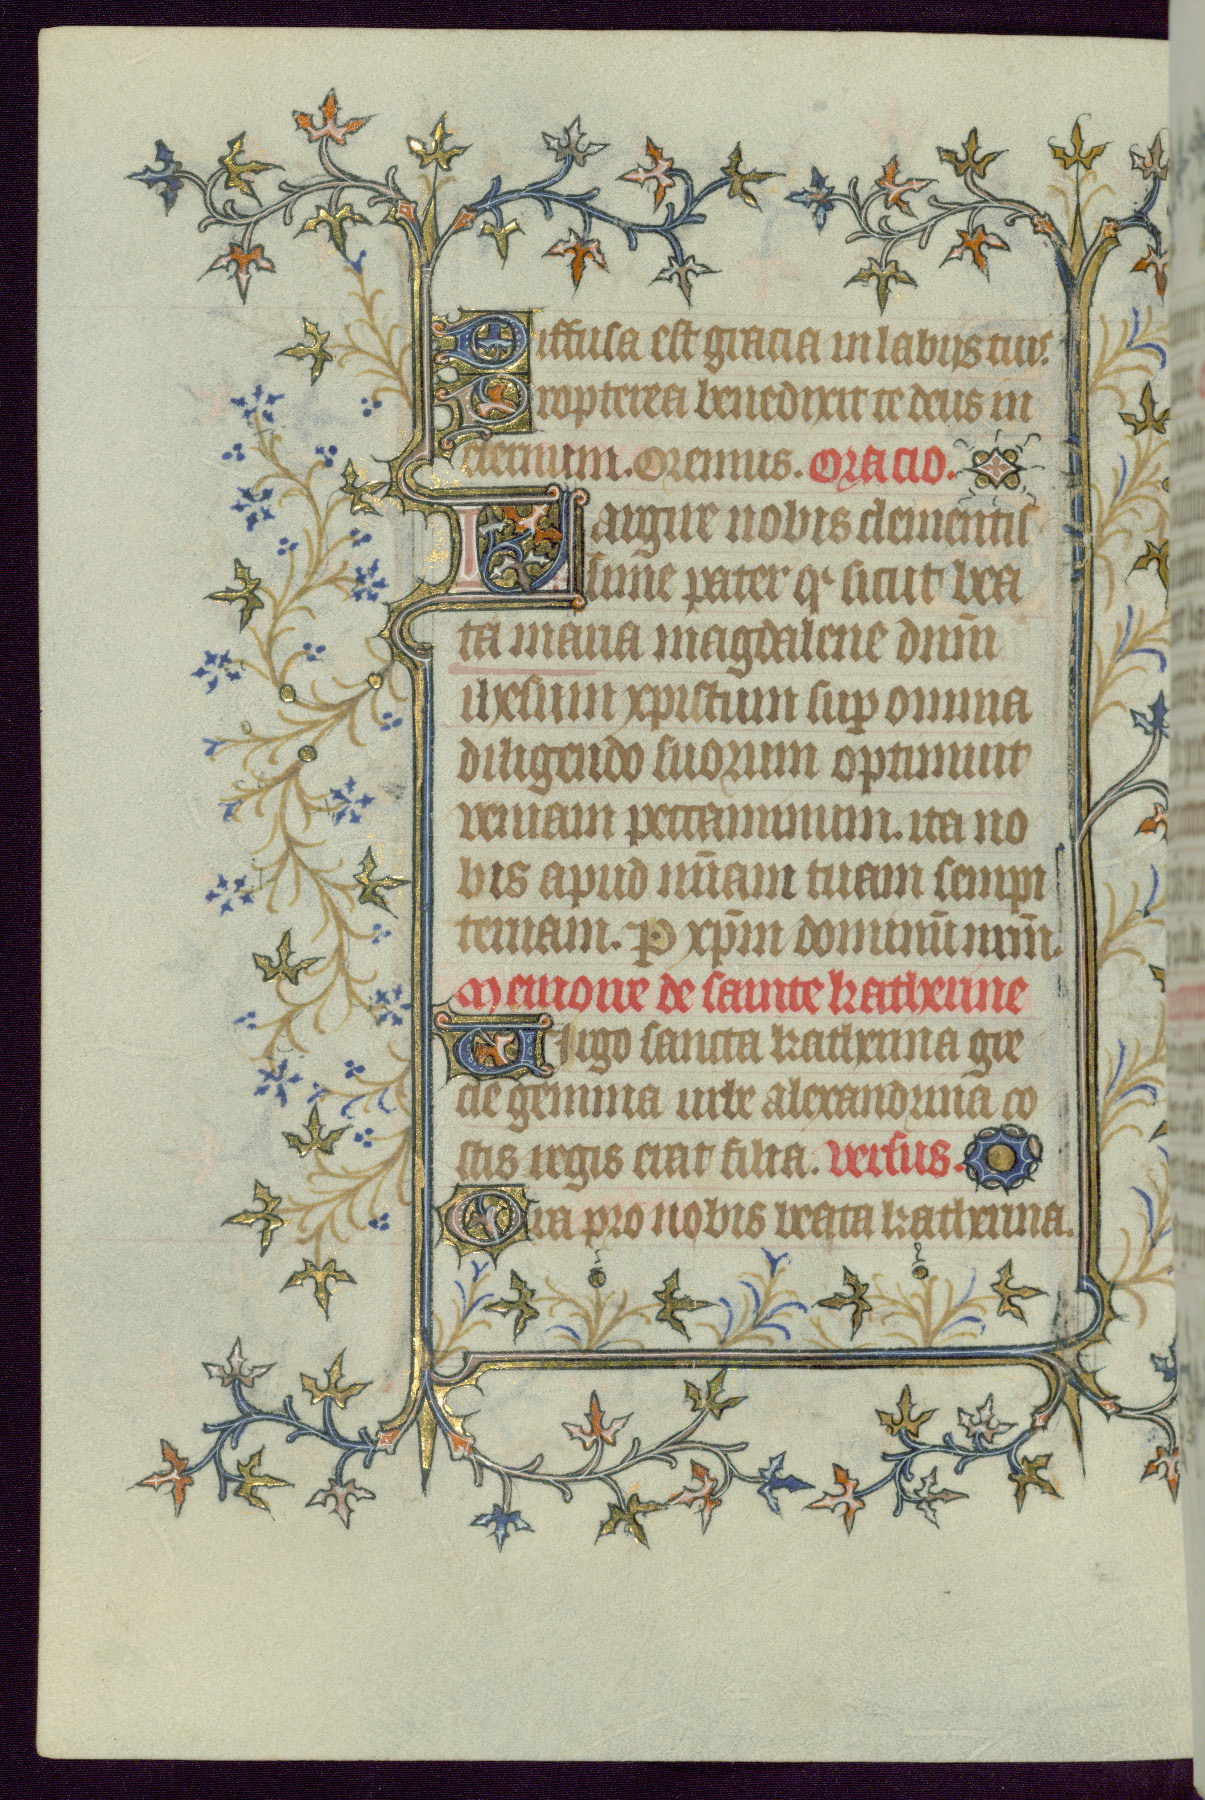 Diffusa est gracia in labijs tuis.
Propterea benedixit te deus in
eternum. Oremus. Oracio.
Largire nobis clementis
sime pater q sicut bea
ta maria magdalene dnm̄
ihesum xpistum sup omnia
diligendo suorum optinuit
veniam peccaminum. ita no
bis apud mīam tuam sempi
ternam. P xp̄m dominū nrm̄.
Memoire de sainte katherine
Virgo sancta katherina gre
cie gemma urbe alexandrina co
stis regis erat filia. versus.
Ora pro nobis beata katherina.